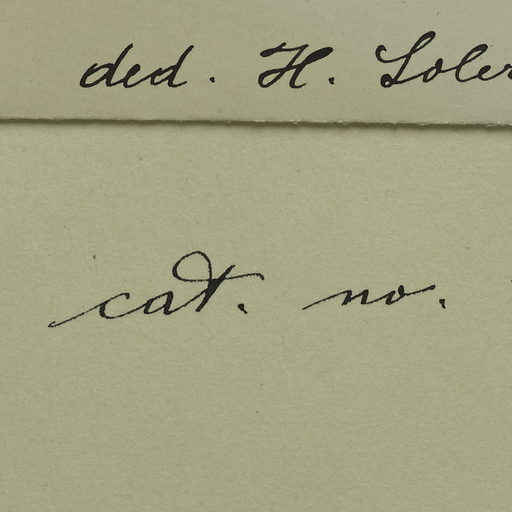 ded. H. Soler
cat. no.